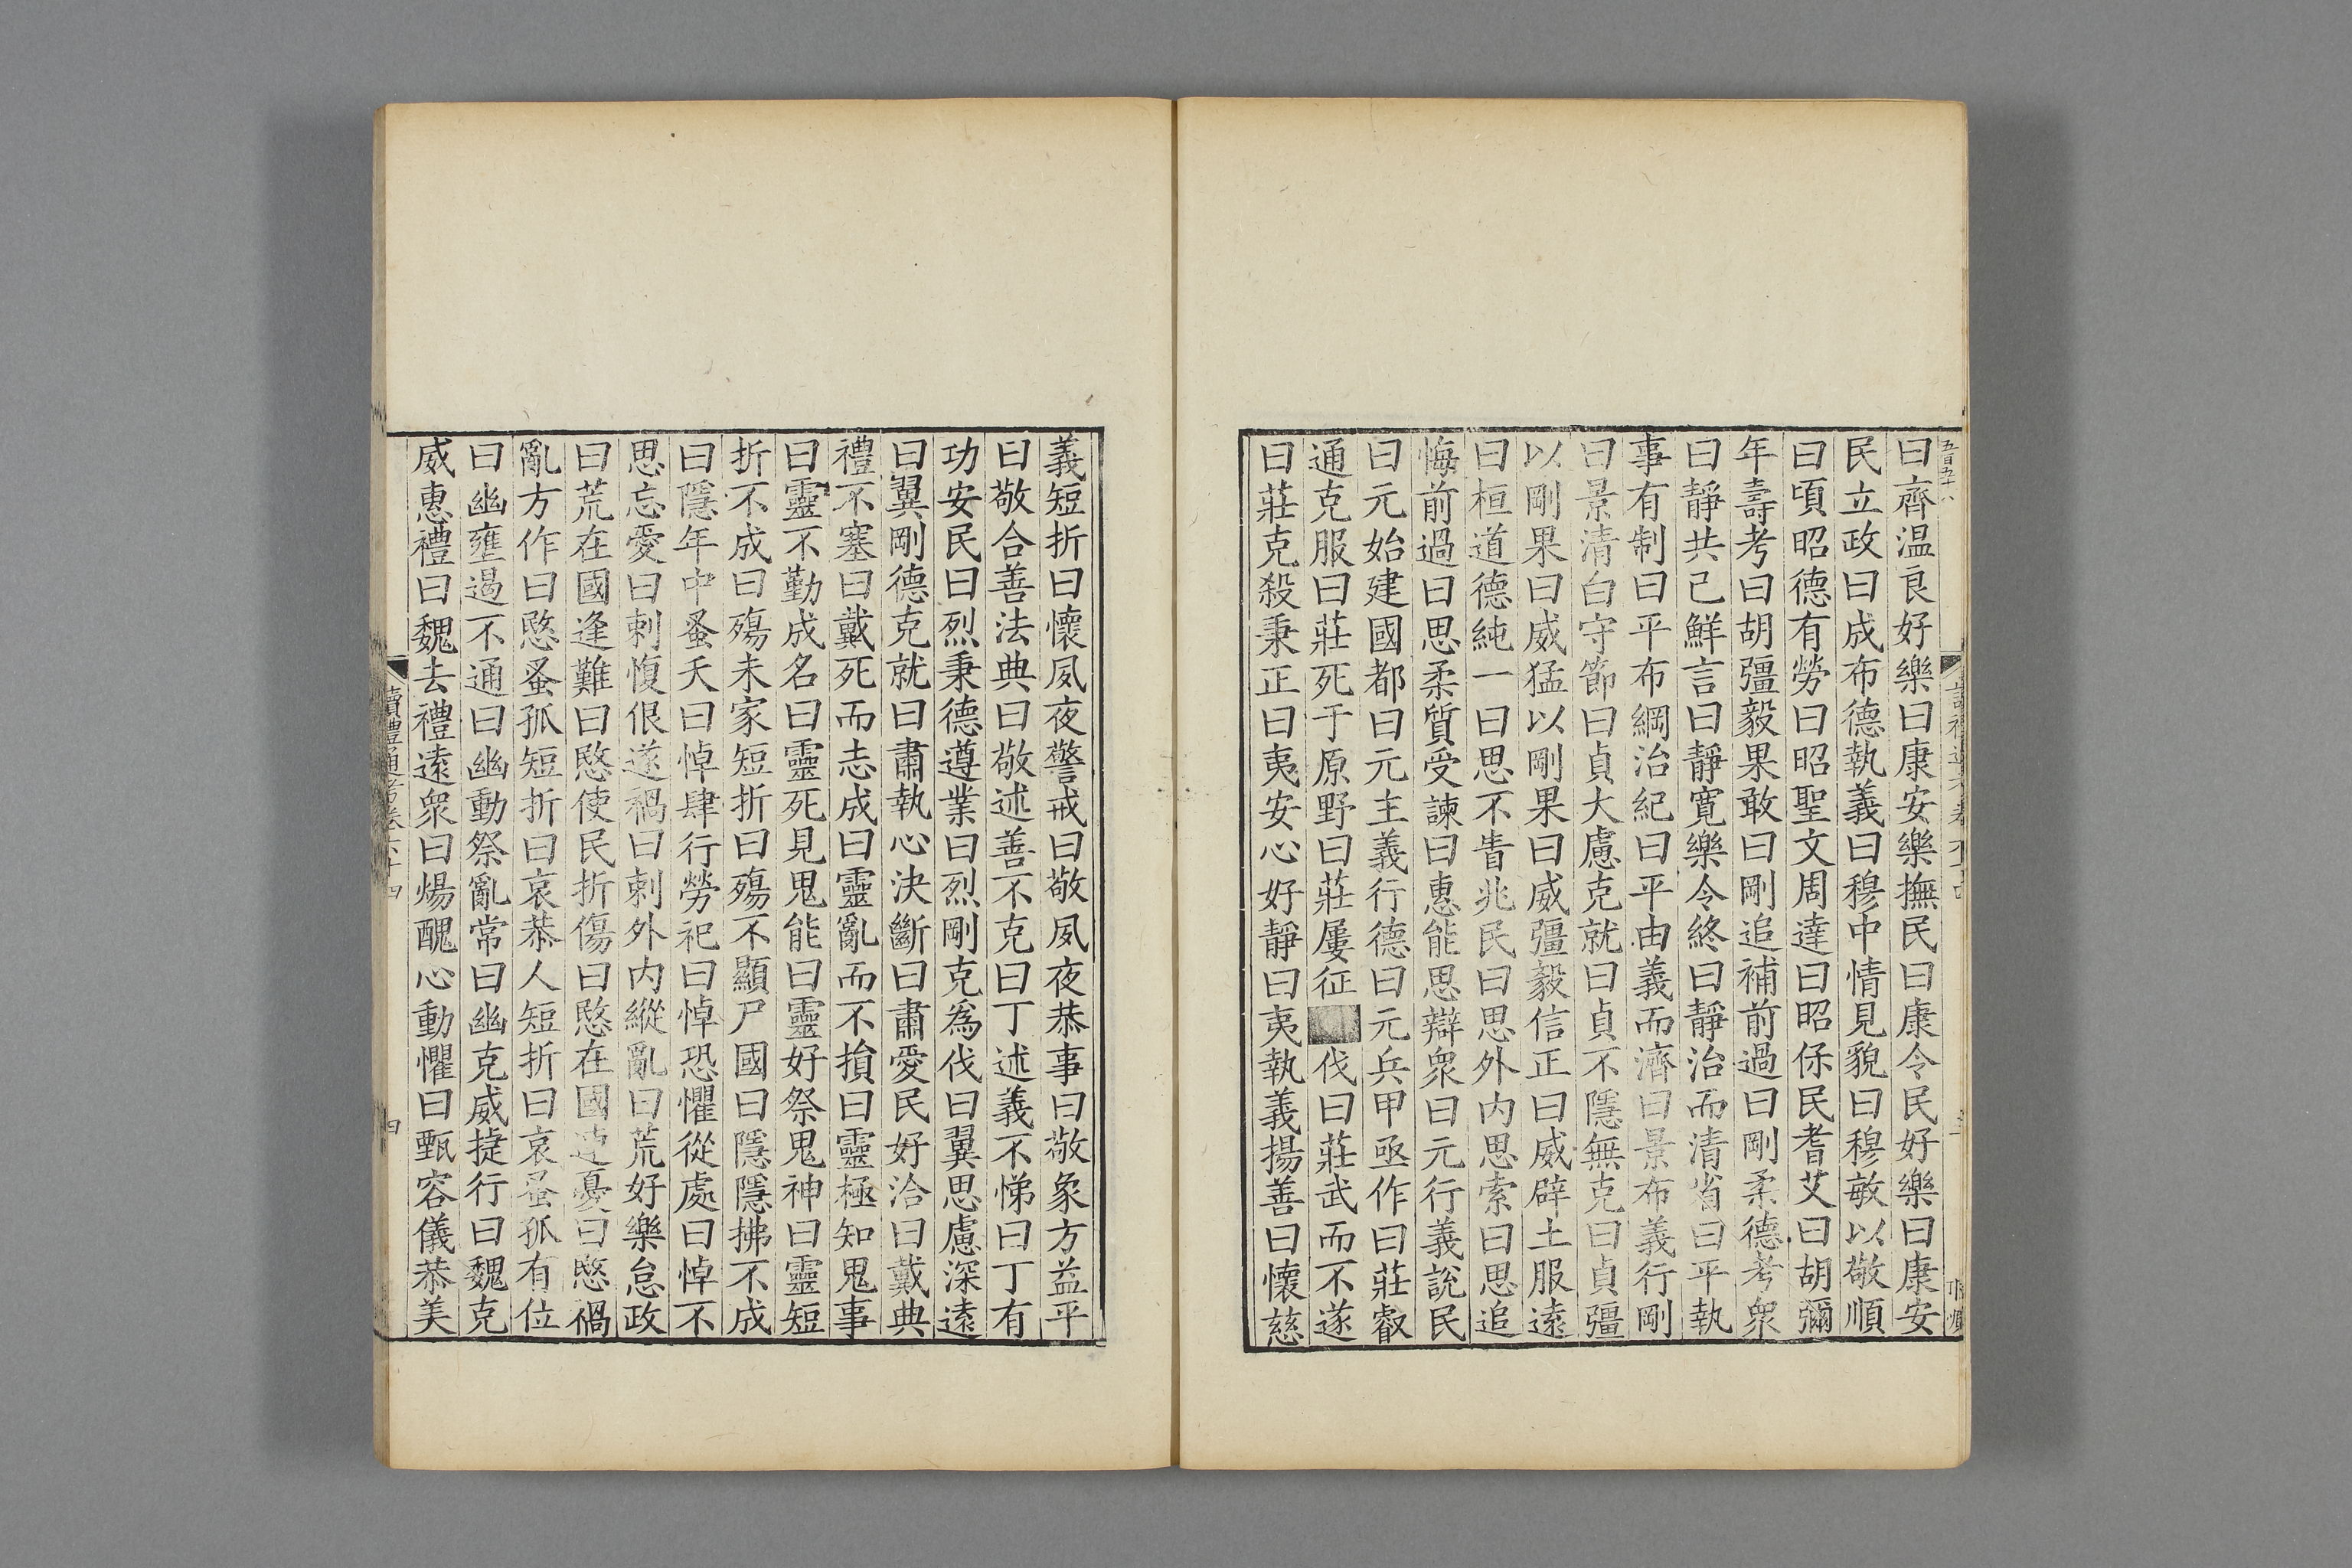 曰齊温良好樂曰康安樂撫民曰康令民好樂曰康安
民立政曰成布德執義曰穆中情見貌曰穆敏以敬順
曰頃昭德有勞曰昭聖文周達曰昭保民耆艾曰胡彌
年壽考曰胡彊毅果敢曰剛追補前過曰剛柔德考衆
曰靜共己鮮言曰靜寬樂令終曰靜治而清省曰平執
事有制曰平布綱治紀曰平由義而濟曰景布義行剛
曰景清白守節曰貞大慮克就曰貞不隱無克曰貞彊
以剛果曰威猛以剛果曰威彊毅信正曰威辟土服遠
曰桓道德純一曰思不眚兆民曰思外内思索曰思追
悔前過曰思柔質受諫曰惠能思辯衆曰元行義說民
曰元始建國都曰元主義行德曰元兵甲亟作曰莊叡
通克服曰莊死于原野曰莊屢征伐曰莊武而不遂
曰莊克殺秉正曰夷安心好靜曰夷執義揚善曰懷慈
義短折曰懷夙夜警戒曰敬夙夜恭事曰敬象方益平
曰敬合善法典曰敬述善不克曰丁述義不悌曰丁有
功安民曰烈秉德遵業曰烈剛克為伐曰翼思慮深遠
曰翼剛德克就曰肅執心決斷曰肅愛民好治曰戴典
禮不塞曰戴死而志成曰靈亂而不損曰靈極知鬼事
曰靈不勤成名曰靈死見鬼能曰靈好祭鬼神曰靈短
折不成曰殤未家短折曰殤不顯尸國曰隱隱拂不成
曰隱年中蚤夭曰悼肆行勞祀曰悼恐懼從處曰悼不
思忘愛曰剌愎佷遂禍曰剌外内縱亂曰荒好樂怠政
曰荒在國逢難曰愍使民折傷曰愍在國遭憂曰愍禍
亂方作曰愍蚤孤短折曰哀恭人短折曰哀蚤孤有位
曰幽壅遏不通曰幽動祭亂常曰幽克威捷行曰魏克
威惠禮曰魏去禮遠衆曰煬醜心動懼曰甄容儀恭美
讀禮通考卷六十四
四